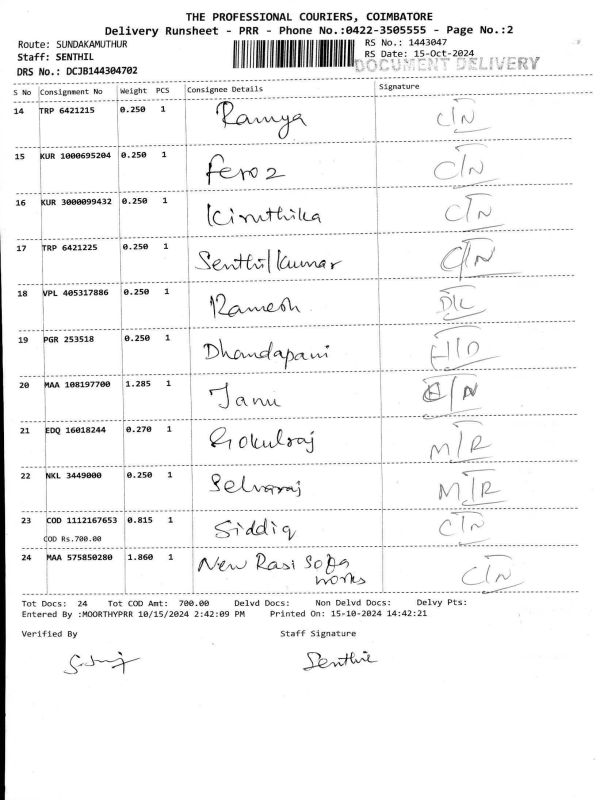 THE PROFESSIONAL COURIERS, COIMBATORE
Delivery Runsheet - PRR - Phone No.:0422-3505555 - Page No.:2
Route: SUNDAKAMUTHUR RS No.: 1443047
Staff: SENTHIL RS Date: 15-Oct-2024
DOCUMENT DELIVERY
DRS No.: DCJB144304702
S No Consignment No Weight PCS Consignee Details Signature
14 TRP 6421215 0.250 1 Ramya C/N
15 KUR 1000695204 0.250 1 Feroz C/N
16 KUR 3000099432 0.250 1 Kiruthika C/N
17 TRP 6421225 0.250 1 Senthilkumar C/N
18 VPL 405317886 0.250 1 Ramesh D/L
19 PGR 253518 0.250 1 Dhandapani H/D
20 MAA 108197700 1.285 1 Janu /N
21 EDQ 16018244 0.270 1 Gokulraj M/R
22 NKL 3449000 0.250 1 Selvaraj M/R
23 COD 1112167653 0.815 1 Siddiq C/N
COD Rs.700.00
24 MAA 575850280 1.860 1 New Rasi Sofa
works C/N
Tot Docs: 24 Tot COD Amt: 700.00 Delvd Docs: Non Delvd Docs: Delvy Pts:
Entered By :MOORTHYPRR 10/15/2024 2:42:09 PM Printed On: 15-10-2024 14:42:21
Verified By Staff Signature
Senthil